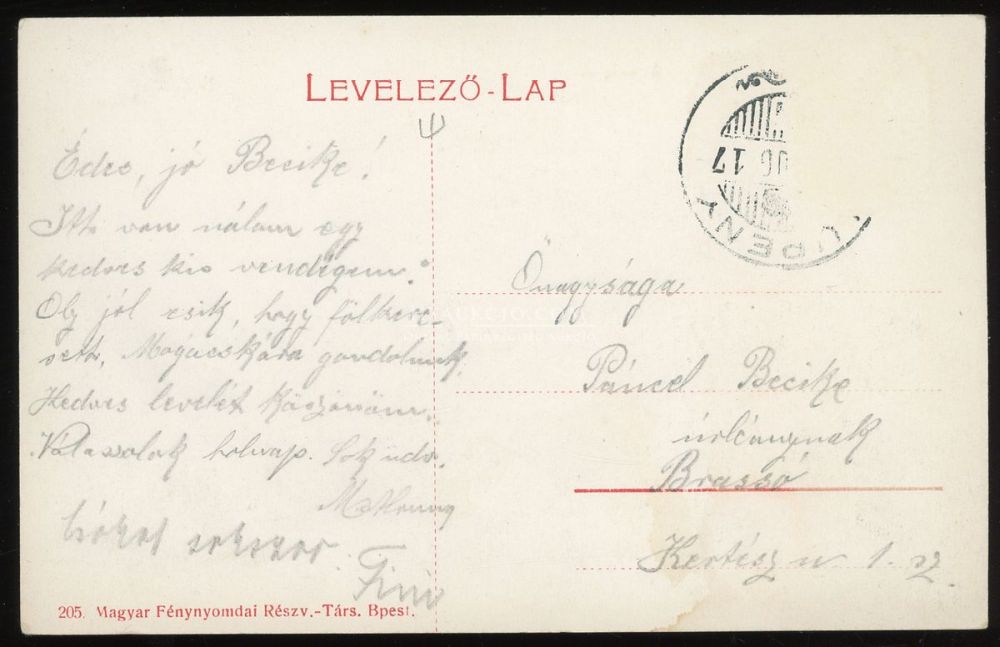 LEVELEZŐ-LAP
Édes, jó Becike!
Itt van nálam egy
kedves kis vendégem.
Oly jól esik, hogy fölkere-
sett, Magácskára gondolunk.
Kedves levelét köszönöm.
Válaszolok holnap. Sok üdv.
csókol sokszor
Önagysága
Páncél Becike
úrleánynak
Brassó
Kertész u 1. sz.
06 17
UPENY
205. Magyar Fénynyomdai Részv.-Társ. Bpest.